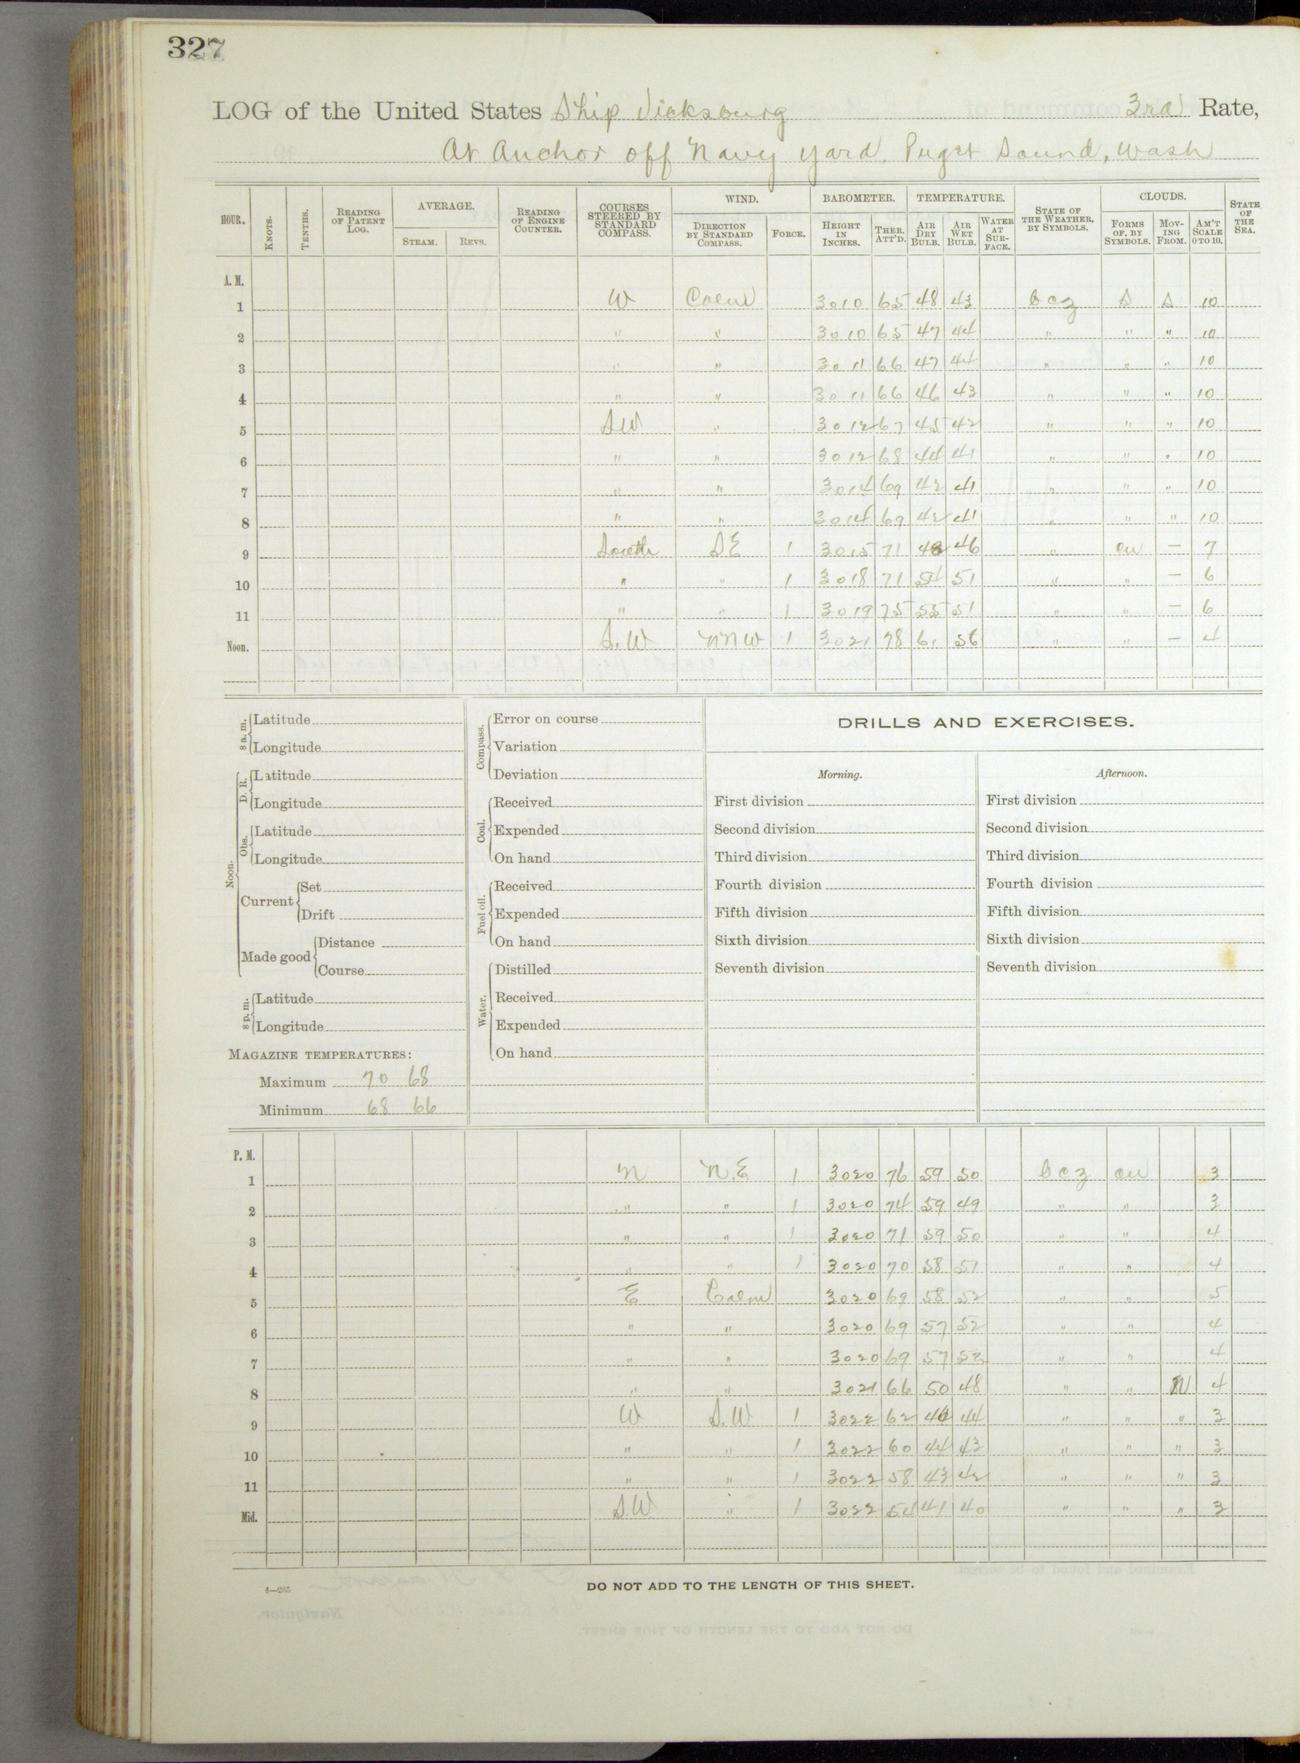 327
LOG of the United States Ship Vicksburg 3rd Rate,
At Anchor off Navy Yard, Puget Sound, Wash
HOUR. KNOTS. TENTHS. READING OF PATENT LOG. AVERAGE. STEAM. REVS. READING OF ENGINE COUNTER. COURSES STEERED BY STANDARD COMPASS. WIND. DIRECTION BY STANDARD COMPASS. FORCE. BAROMETER. HEIGHT IN INCHES. THER. ATT'D. TEMPERATURE. AIR DRY BULB. AIR WET BULB. WATER AT SURFACE. STATE OF THE WEATHER, BY SYMBOLS. CLOUDS. FORMS OF, BY SYMBOLS. MOVING FROM. AM'T SCALE 0 TO 10. STATE OF THE SEA.
A. M.
1 W Calm 3010 65 48 43 bcz S S 10
2 " " 3010 65 47 44 " " " 10
3 " " 3011 66 47 44 " " " 10
4 " " 3011 66 46 43 " " " 10
5 SW " 3012 67 45 42 " " " 10
6 " " 3012 68 44 41 " " " 10
7 " " 3014 69 42 41 " " " 10
8 " " 3014 69 42 41 " " " 10
9 South SE 1 3015 71 48 46 " cu — 7
10 " " 1 3018 71 54 51 " " — 6
11 " " 1 3019 75 55 51 " " — 6
Noon. S.W NNW 1 3021 78 61 56 " " — 4
8 a. m. Latitude
Longitude
Noon. D. R. Latitude
Longitude
Obs. Latitude
Longitude
Current Set
Drift
Made good Distance
Course
8 p. m. Latitude
Longitude
MAGAZINE TEMPERATURES:
Maximum 70 68
Minimum 68 66
Compass. Error on course
Variation
Deviation
Coal. Received
Expended
On hand
Fuel oil. Received
Expended
On hand
Water. Distilled
Received
Expended
On hand
DRILLS AND EXERCISES.
Morning.
First division
Second division
Third division
Fourth division
Fifth division
Sixth division
Seventh division
Afternoon.
First division
Second division
Third division
Fourth division
Fifth division
Sixth division
Seventh division
P. M.
1 N N.E 1 3020 76 59 50 bcz cu 3
2 " " 1 3020 74 59 49 " " 3
3 " " 1 3020 71 59 50 " " 4
4 " " 1 3020 70 58 51 " " 4
5 E Calm 3020 69 58 52 " " 5
6 " " 3020 69 57 52 " " 4
7 " " 3020 69 57 53 " " 4
8 " " 3021 66 50 48 " " W 4
9 W S.W 1 3022 62 46 44 " " " 3
10 " " 1 3022 60 44 43 " " " 3
11 " " 1 3022 58 43 42 " " " 3
Mid. S.W " 1 3022 54 41 40 " " " 3
DO NOT ADD TO THE LENGTH OF THIS SHEET.